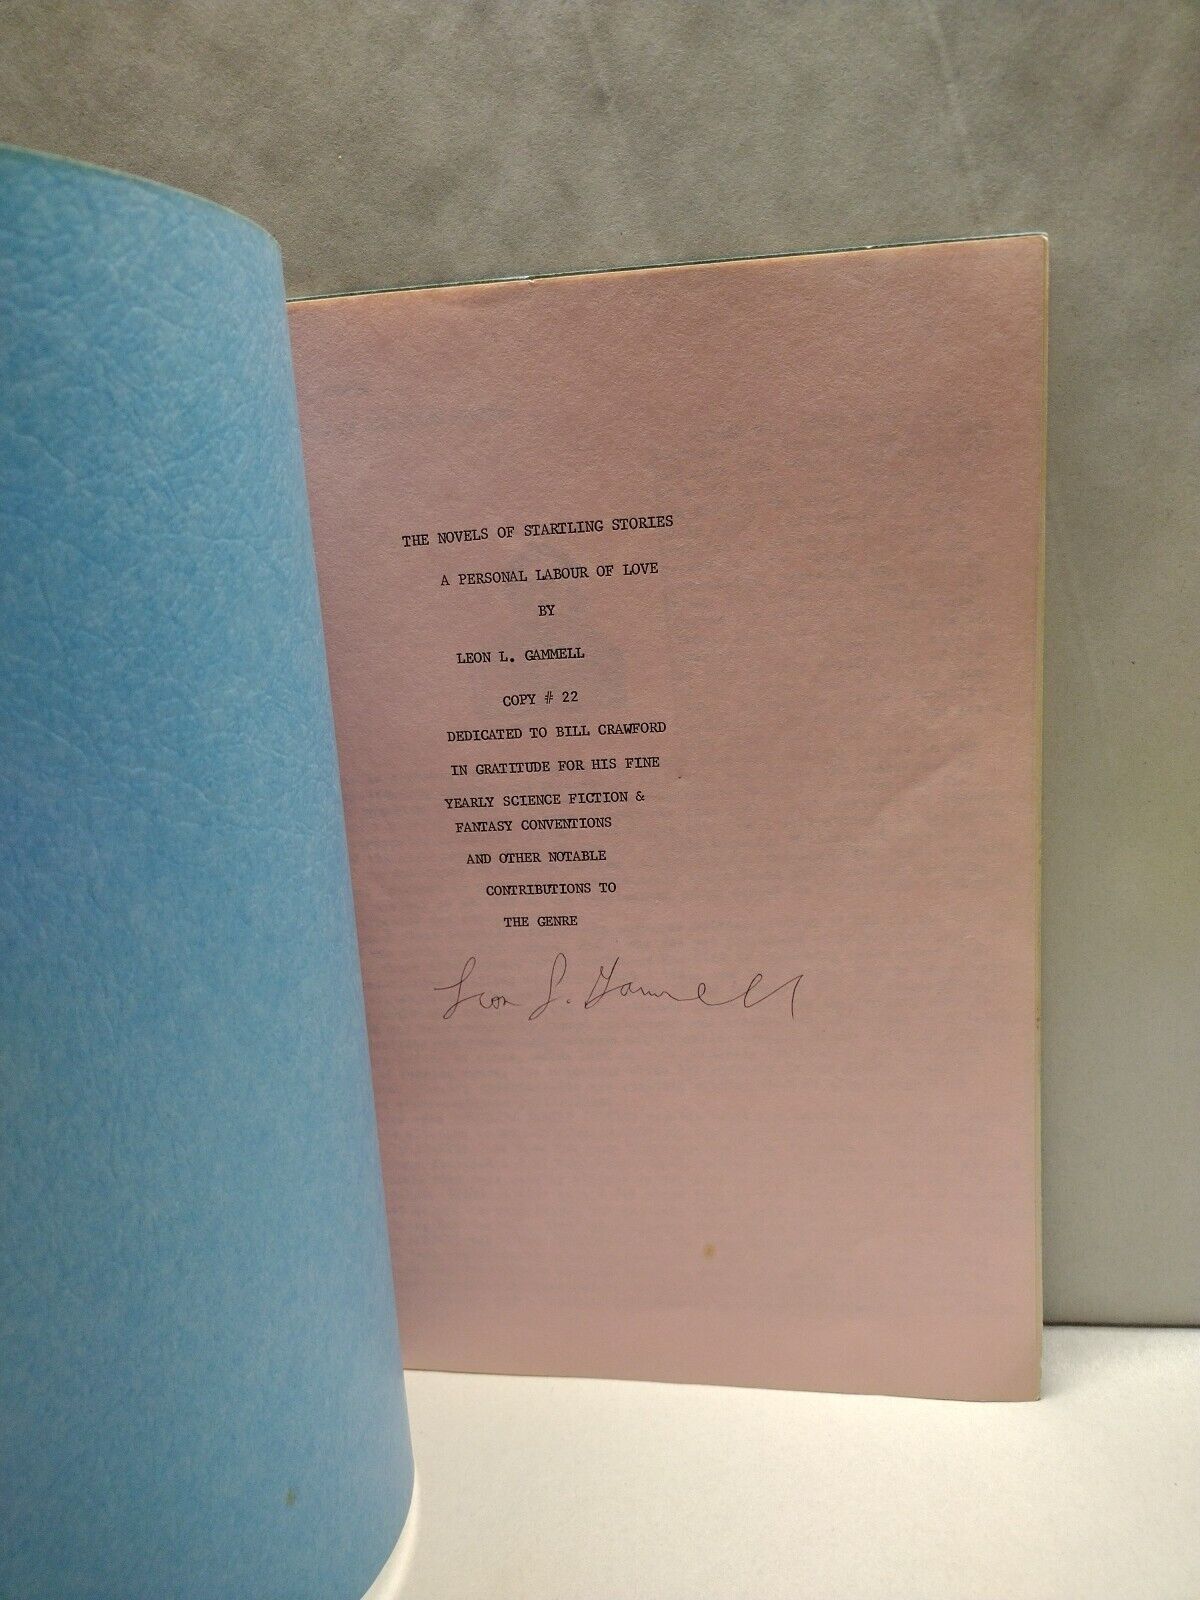 THE NOVELS OF STARTLING STORIES
A PERSONAL LABOUR OF LOVE
BY
LEON L. GAMMELL
COPY # 22
DEDICATED TO BILL CRAWFORD
IN GRATITUDE FOR HIS FINE
YEARLY SCIENCE FICTION &
FANTASY CONVENTIONS
AND OTHER NOTABLE
CONTRIBUTIONS TO
THE GENRE
Leon L. Gammell